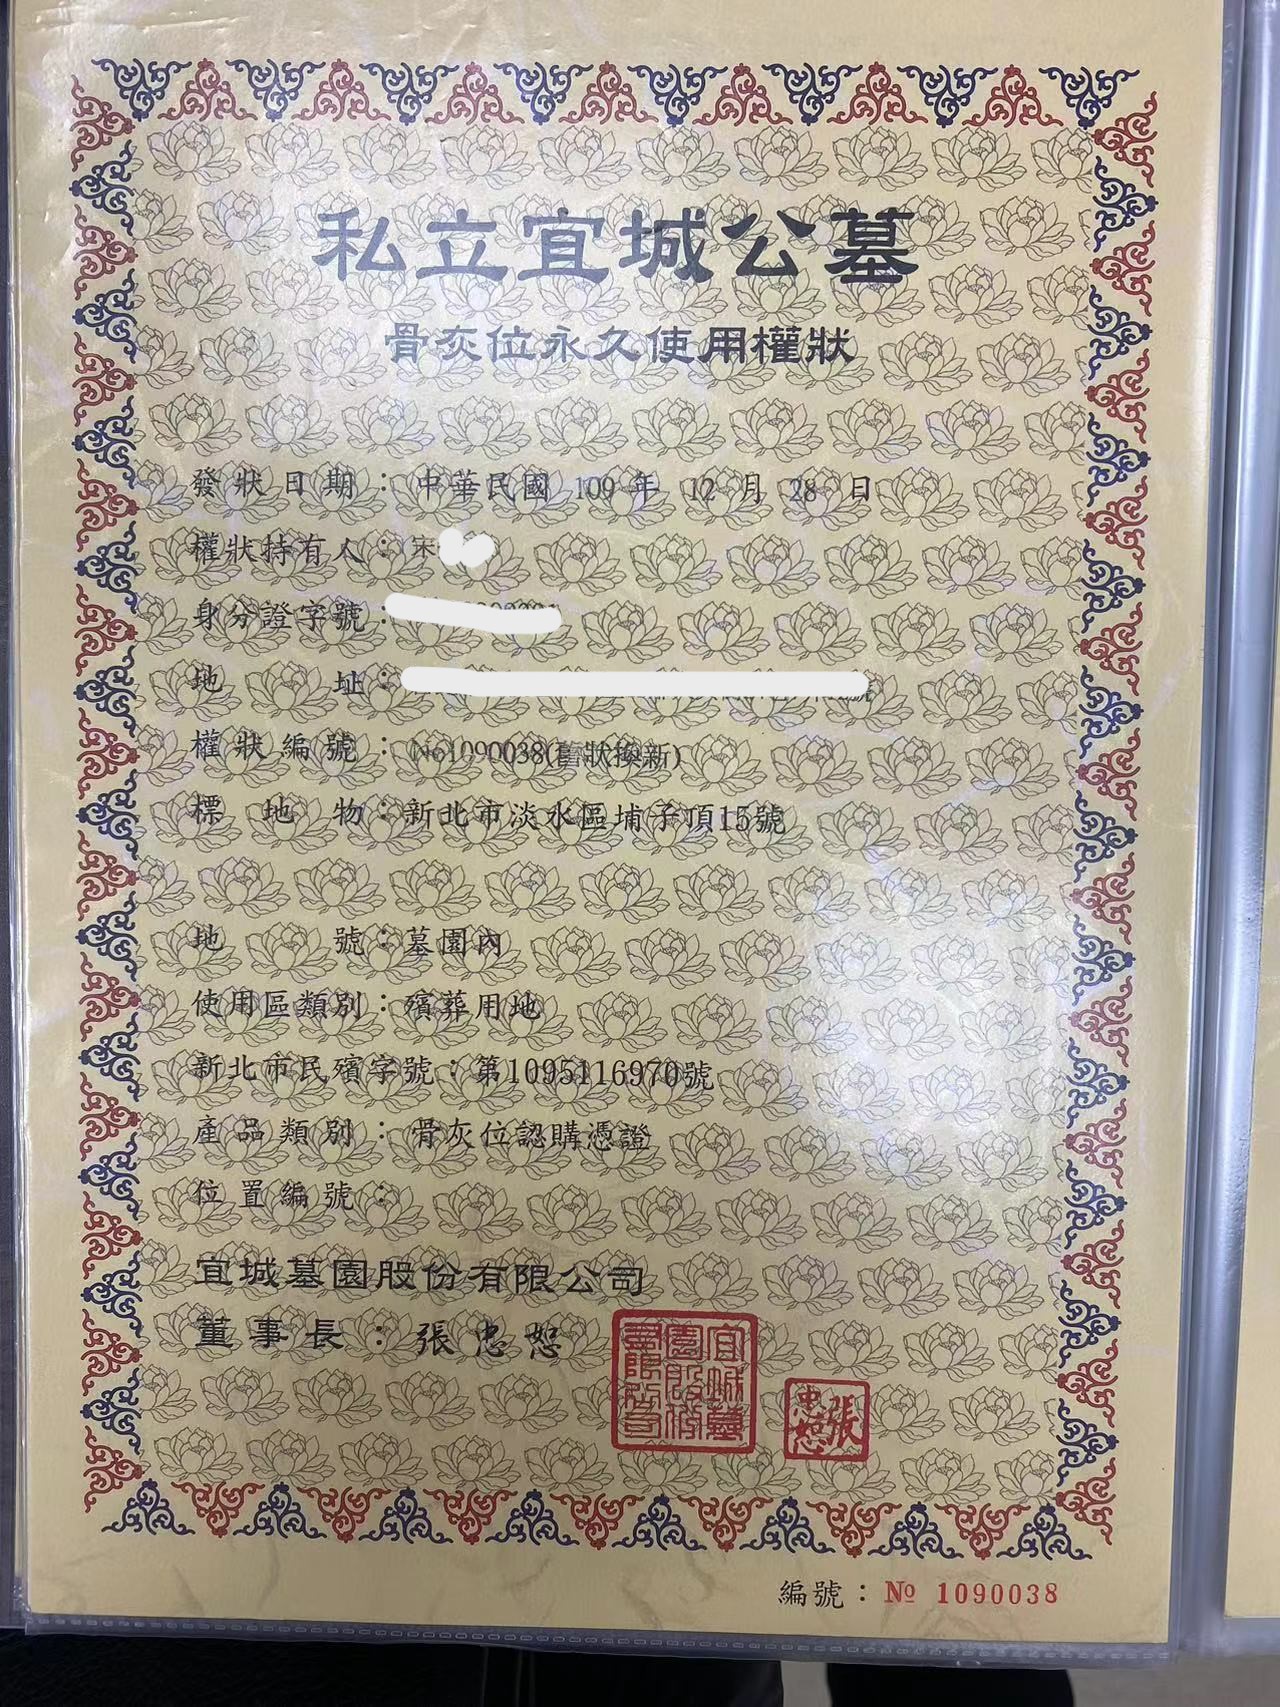 私立宜城公墓
骨灰位永久使用權狀
發狀日期：中華民國 109 年 12 月 28 日
權狀持有人：宋
身分證字號：
地址：號
權狀編號：No1090038(舊狀換新)
標地物：新北市淡水區埔子頂15號
地號：墓園內
使用區類別：殯葬用地
新北市民殯字號：第1095116970號
產品類別：骨灰位認購憑證
位置編號：
宜城墓園股份有限公司
董事長：張忠恕
宜城墓園股份有限公司
張忠恕
編號：№ 1090038